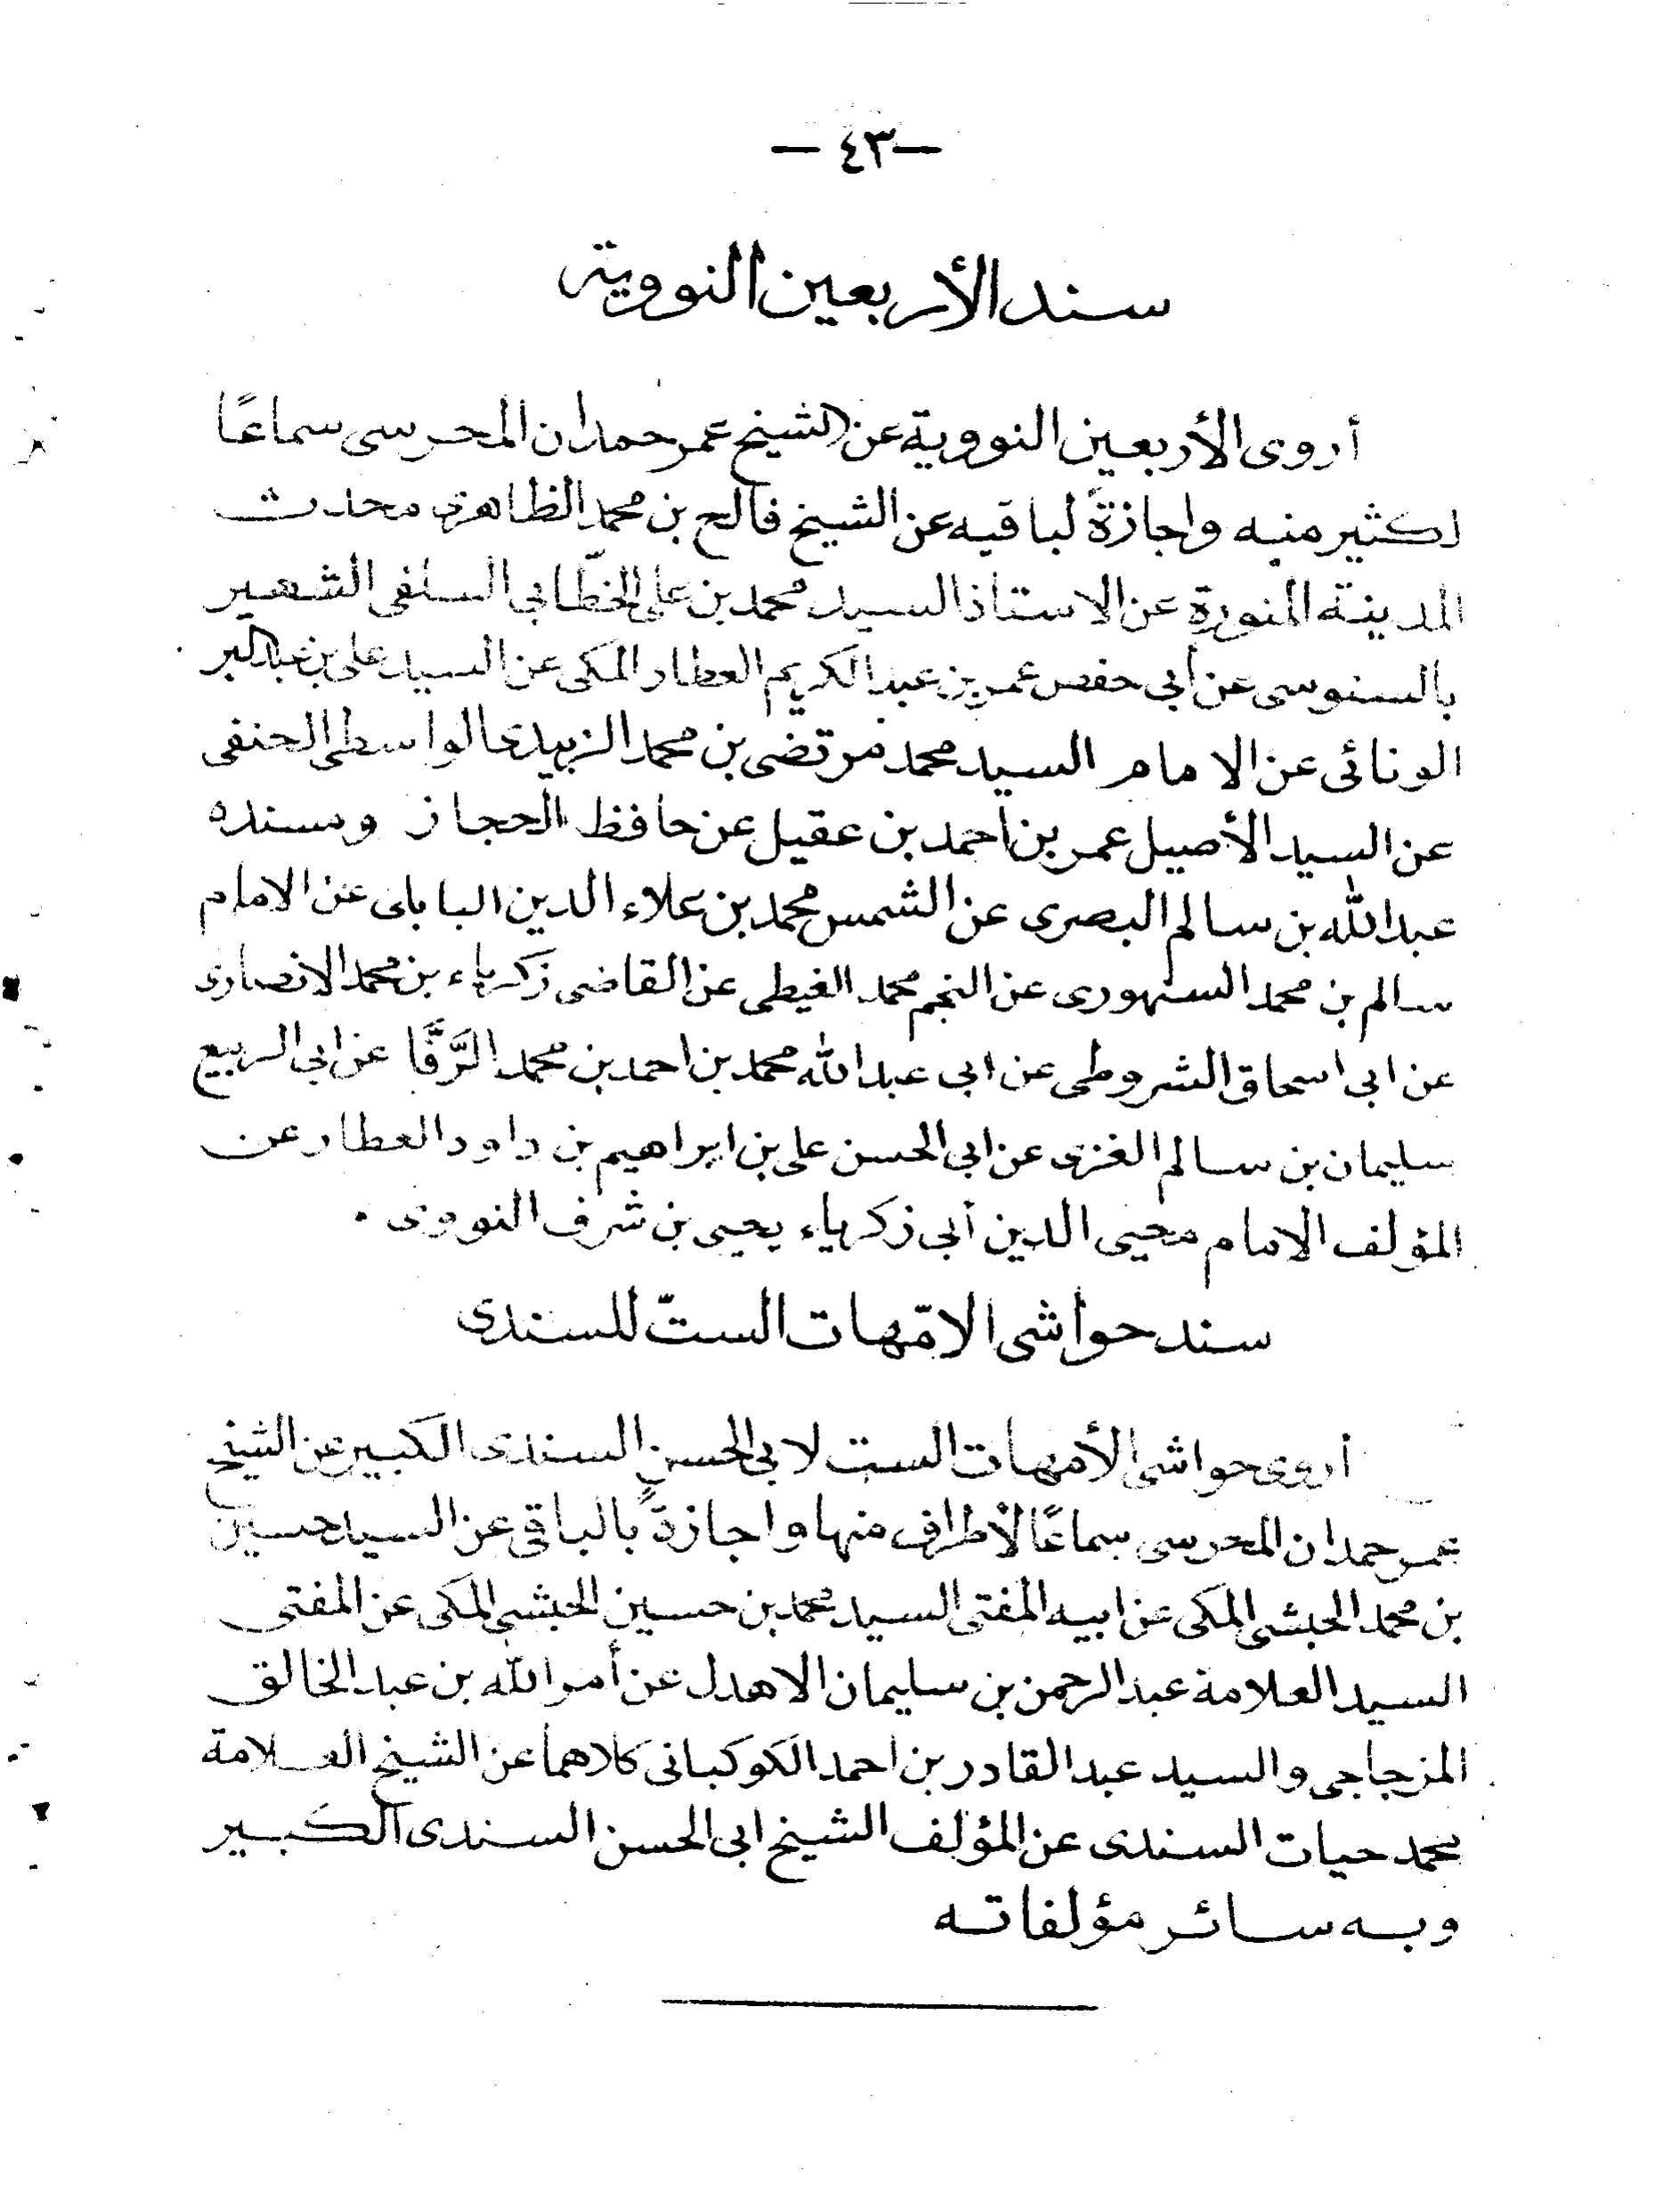 — ٤٣ —
سند الأربعين النووية
أروى الأربعين النووية عن الشيخ عمر حمدان المحرسى سماعًا
لكثير منه واجازةً لباقيه عن الشيخ فالح بن محمد الظاهرى محدث
المدينة المنورة عن الاستاذ السيد محمد بن على الخطّابى السلفى الشهير
بالسنوسى عن أبى حفص عمر بن عبد الكريم العطار المكى عن السيد على بن عبد البر
الونائى عن الامام السيد محمد مرتضى بن محمد الزبيدى الواسطى الحنفى
عن السيد الأصيل عمر بن احمد بن عقيل عن حافظ الحجاز ومسنده
عبد الله بن سالم البصرى عن الشمس محمد بن علاء الدين البابلى عن الامام
سالم بن محمد السنهورى عن النجم محمد الغيطى عن القاضى زكرياء بن محمد الانصارى
عن ابى اسحاق الشروطى عن ابى عبد الله محمد بن احمد بن محمد الرَّفَّا عن ابى الربيع
سليمان بن سالم الغزى عن ابى الحسن على بن ابراهيم بن داود العطار عن
المؤلف الامام محيى الدين أبى زكرياء يحيى بن شرف النووى .
سند حواشى الامّهات الستّ للسندى
أروى حواشى الأمهات الست لابى الحسن السندى الكبير عن الشيخ
عمر حمدان المحرسى سماعًا لأطراف منها واجازةً بالباقى عن السيد حسين
بن محمد الحبشى المكى عن ابيه المفتى السيد محمد بن حسين الحبشى المكى عن المفتى
السيد العلامة عبد الرحمن بن سليمان الاهدل عن أمر الله بن عبد الخالق
المزجاجى والسيد عبد القادر بن احمد الكوكبانى كلاهما عن الشيخ العلامة
محمد حيات السندى عن المؤلف الشيخ ابى الحسن السندى الكبير
وبه سائر مؤلفاته